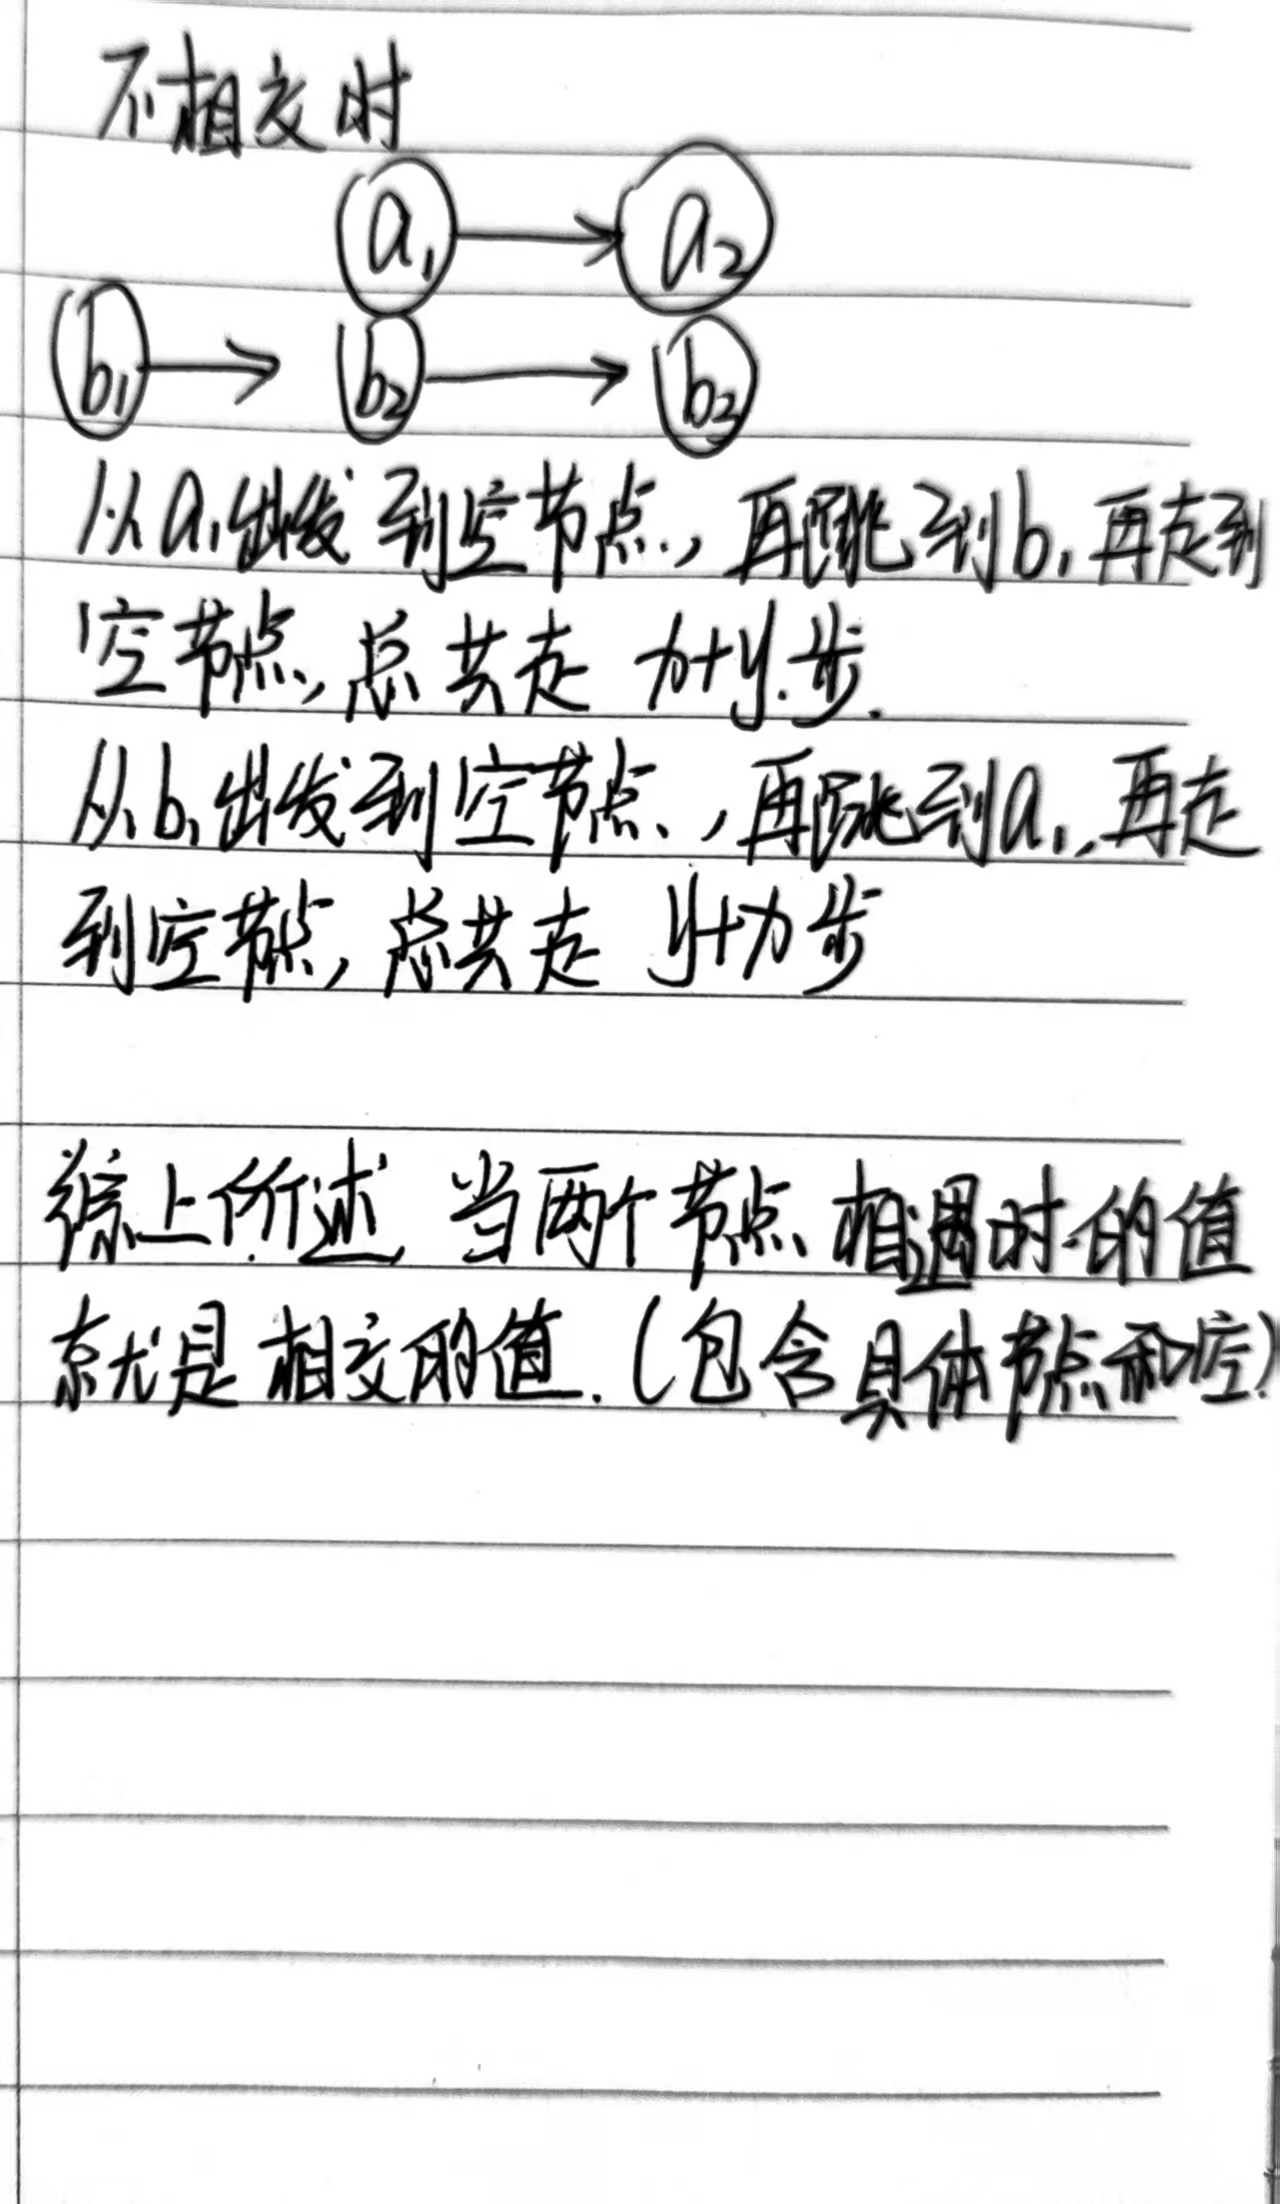 不相交时
a₁ → a₂
b₁ → b₂ → b₃
从a₁出发到空节点,再跳到b₁再走到
空节点,总共走 x+y步.
从b₁出发到空节点,再跳到a₁,再走
到空节点,总共走 y+x步
综上所述 当两个节点相遇时的值
就是相交的值.(包含具体节点和空)